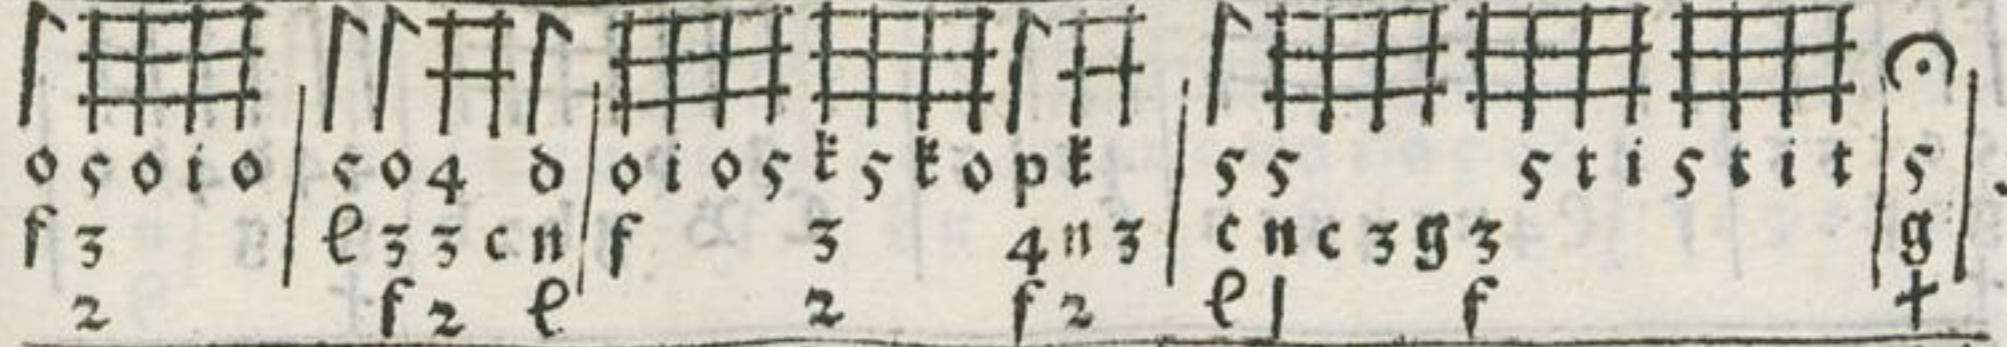 o 5 o i o 5 o 4 d o i o 5 k 5 k o p k 5 5 5 t i 5 t i t 5
f 3 e 3 3 c n f 3 4 n 3 c n c 3 g 3 g
2 f 2 e 2 f 2 e l f +